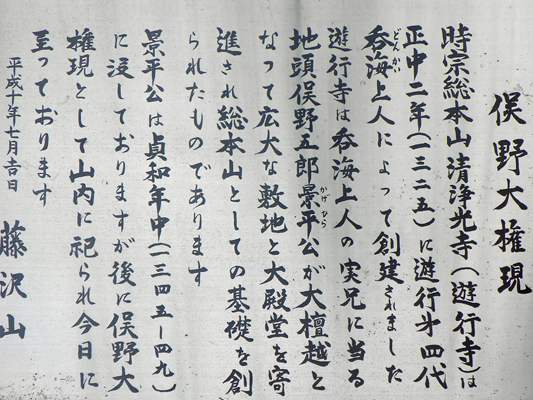 俣野大権現
時宗総本山清浄光寺(遊行寺)は
正中二年(一三二五)に遊行第四代
呑海上人によって創建されました
どんかい
遊行寺は呑海上人の実兄に当る
地頭俣野五郎景平公が大檀越と
かげひら
なって広大な敷地と大殿堂を寄
進され総本山としての基礎を創
られたものであります
景平公は貞和年中(一三四五ー四九)
に没しておりますが後に俣野大
権現として山内に祀られ今日に
至っております
平成十年七月吉日
藤沢山